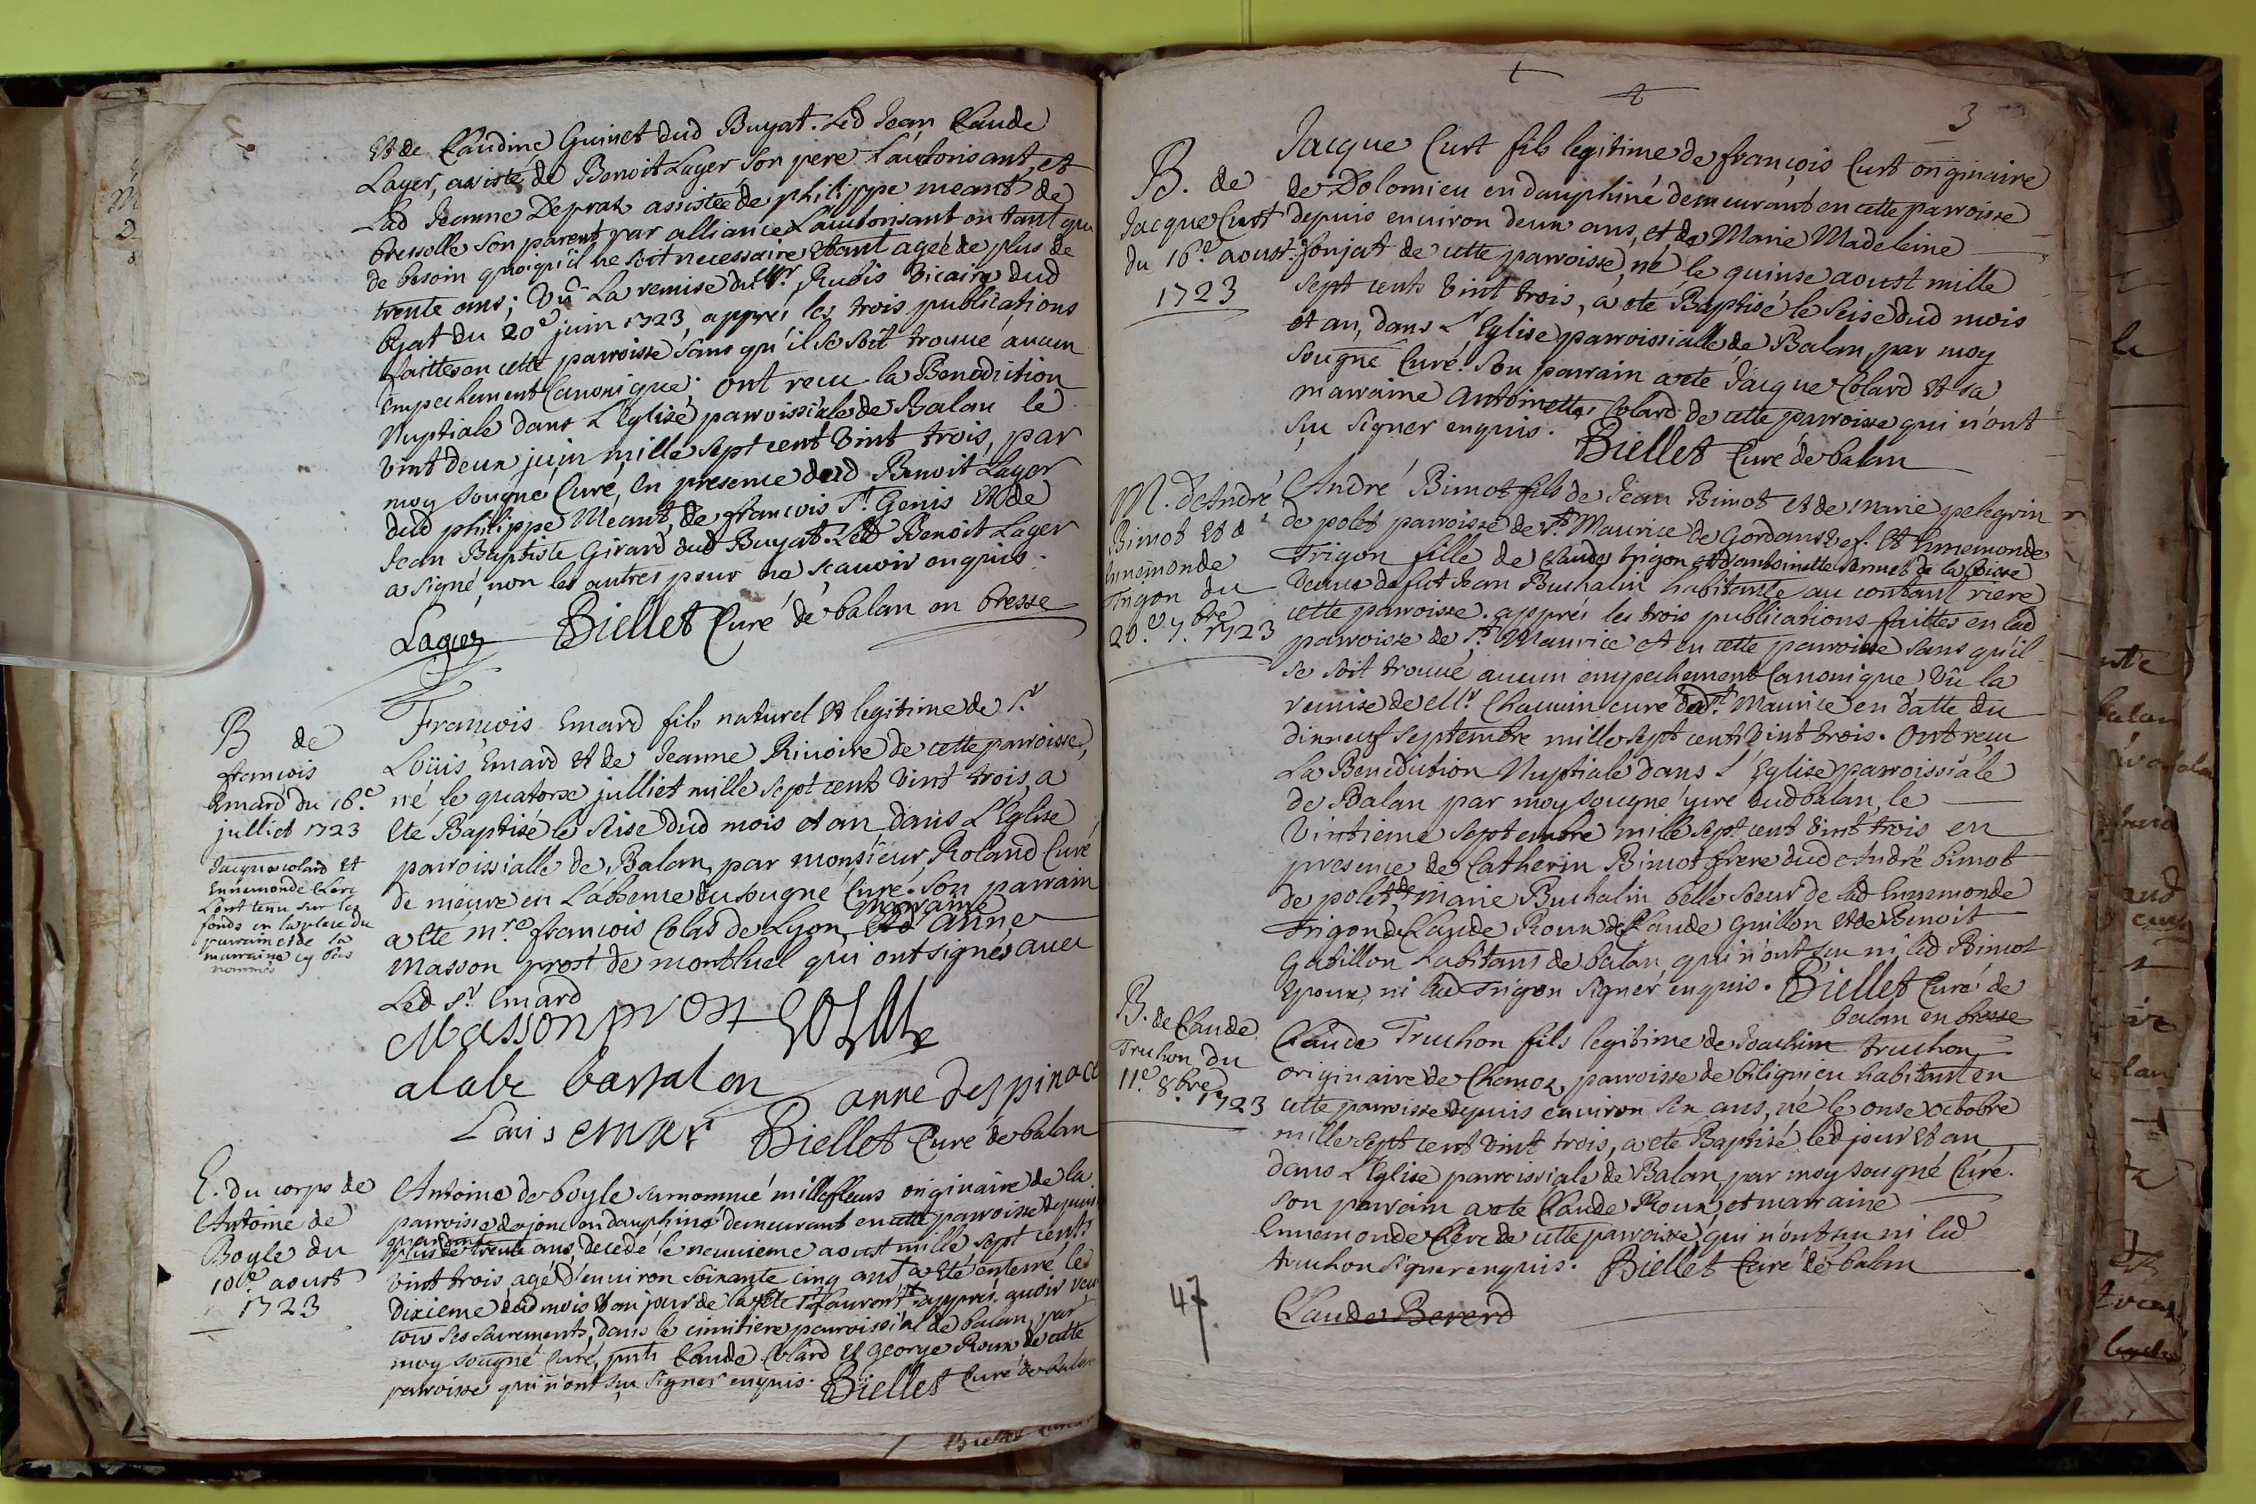 et de Claudine Guinet dud Buyat. Led Jean Claude
Layer, assisté de Benoit Layer son pere l'autorisant, et
Lad Jeanne Deprat assistée de philippe meant de
bressolle son parent par alliance L'autorisant en tant que
de besoin quoiqu'il ne soit necessaire etant ageé de plus de
trente ans; Vû La remise du Mr. Rubis Vicaire dud
du 20e juin 1723, apprés les trois publications
faittes en cette parroisse sans qu'il se soit trouué aucun
empechement Canonique; ont recu la Benediction
Nuptiale dans L'Eglise parroissiale de Balan le
vint deux juin mille sept cent vint trois, par
moy sougné Curé, en presence dud Benoit Layer
dud philippe Meant, de françois St. Genis et de
Jean Baptiste Girard dud Buyat. Led Benoit Layer
a signé, non les autres pour ne sçauoir enquis.
Layer Biellet Curé de balan en bresse
B de
francois
Emard du 16.e
julliet 1723
Jacque colard et
Ennemonde Clerc
L'ont tenu sur les
fonds en la place du
parrain et de la
marraine cy dessus
nommés
François Emard fils naturel et legitime de Sr.
Loüis Emard et de Jeanne Riuoire de cette parroisse,
né le quatorse julliet mille sept cents vint trois, a
eté Baptisé le seise dud mois et an dans L'Eglise
parroissialle de Balan, par monsieur Roland Curé
de nieure en L'absence du sougné Curé. Son parrain
a eté mre. françois Colas de Lyon et sa marraine anne
Masson prost de montluel qui ont signés auec
Led Sr. Emard
Masson prost
alabe bassalon anne despinace
Louis emar Biellet Curé de balan
E. du corps de
Antoine de
Boyle du
10e. aoust
1723
Antoine de boyle surnommé millefleurs originaire de la
parroisse de jone en dauphiné demeurant en cette parroisse depuis
plus de trente ans, decedé le neuuieme aoust mille sept cents
vint trois agé d'enuiron soixante cinq ans a eté enterré le
dixieme dud mois et an jour de la fete St. Laurent apprés auoir recu
tous ses sacrements, dans le cimitiere parroissial de balan, par
moy sougné Curé, pnts Claude Colard et George Roux de cette
parroisse qui n'ont sçu signer enquis. Biellet Curé de balan
3
B. de
Jacque Curt
du 16.e aoust
1723
Jacque Curt fils legitime de françois Curt originaire
de Dolomieu en dauphiné demeurant en cette parroisse
depuis enuiron deux ans, et de Marie Madeleine
fonjat de cette parroisse, né le quinse aoust mille
sept cents vint trois, a ete Baptisé le seise dud mois
et an, dans L'Eglise parroissialle de Balan, par moy
sougné Curé. Son parrain a ete Jacque Colard et sa
marraine Antoinette Colard de cette parroisse qui n'ont
sçu signer enquis. Biellet Curé de balan
M. d'André
Bimot et d
Ennemonde
Trigon du
20.e 7.bre 1723
André Bimot fils de Jean Bimot et de Marie pelegrin
de polet parroisse de St. Maurice de Gordans d'ef. et Ennemonde
Trigon fille de Claude trigon et d'antoinette de la boisse
Veuue de fut Jean Buchalin habitante au contant riere
cette parroisse. apprés les trois publications faittes en lad
parroisse de St. Maurice et en cette parroisse sans qu'il
se soit trouué aucun empechement Canonique vû la
remise de Mr. Chauuin curé dud St. Maurice en datte du
dixneuf septembre mille sept cents vint trois. Ont recu
La Benediction Nuptiale dans L'Eglise parroissiale
de Balan par moy sougné curé dud balan, le
Vintieme septembre mille sept cent vint trois en
presence de Catherin Bimot frere dud André bimot
de polet, de marie Buchalin belle soeur de lad Ennemonde
Trigon de Claude Roux de Claude Guillon et de Benoit
Gabillon habitans de balan qui n'ont sçu ni led Bimot
Epoux, ni lad Trigon signer enquis. Biellet Curé de
balan en bresse
B. de Claude
Truchon du
11.e 8.bre 1723
Claude Truchon fils legitime de Joachim truchon
originaire de Chamoz, parroisse de biligneu habitant en
cette parroisse depuis enuiron six ans, né le onse octobre
mille sept cent vint trois, a ete Baptisé led jour et an
dans L'Eglise parroissiale de Balan par moy sougné Curé.
son parrain a ete Claude Roux, et marraine
Ennemonde Clerc de cette parroisse, qui n'ont sçu ni led
truchon signer enquis. Biellet Curé de balan
47
Claude Bererd